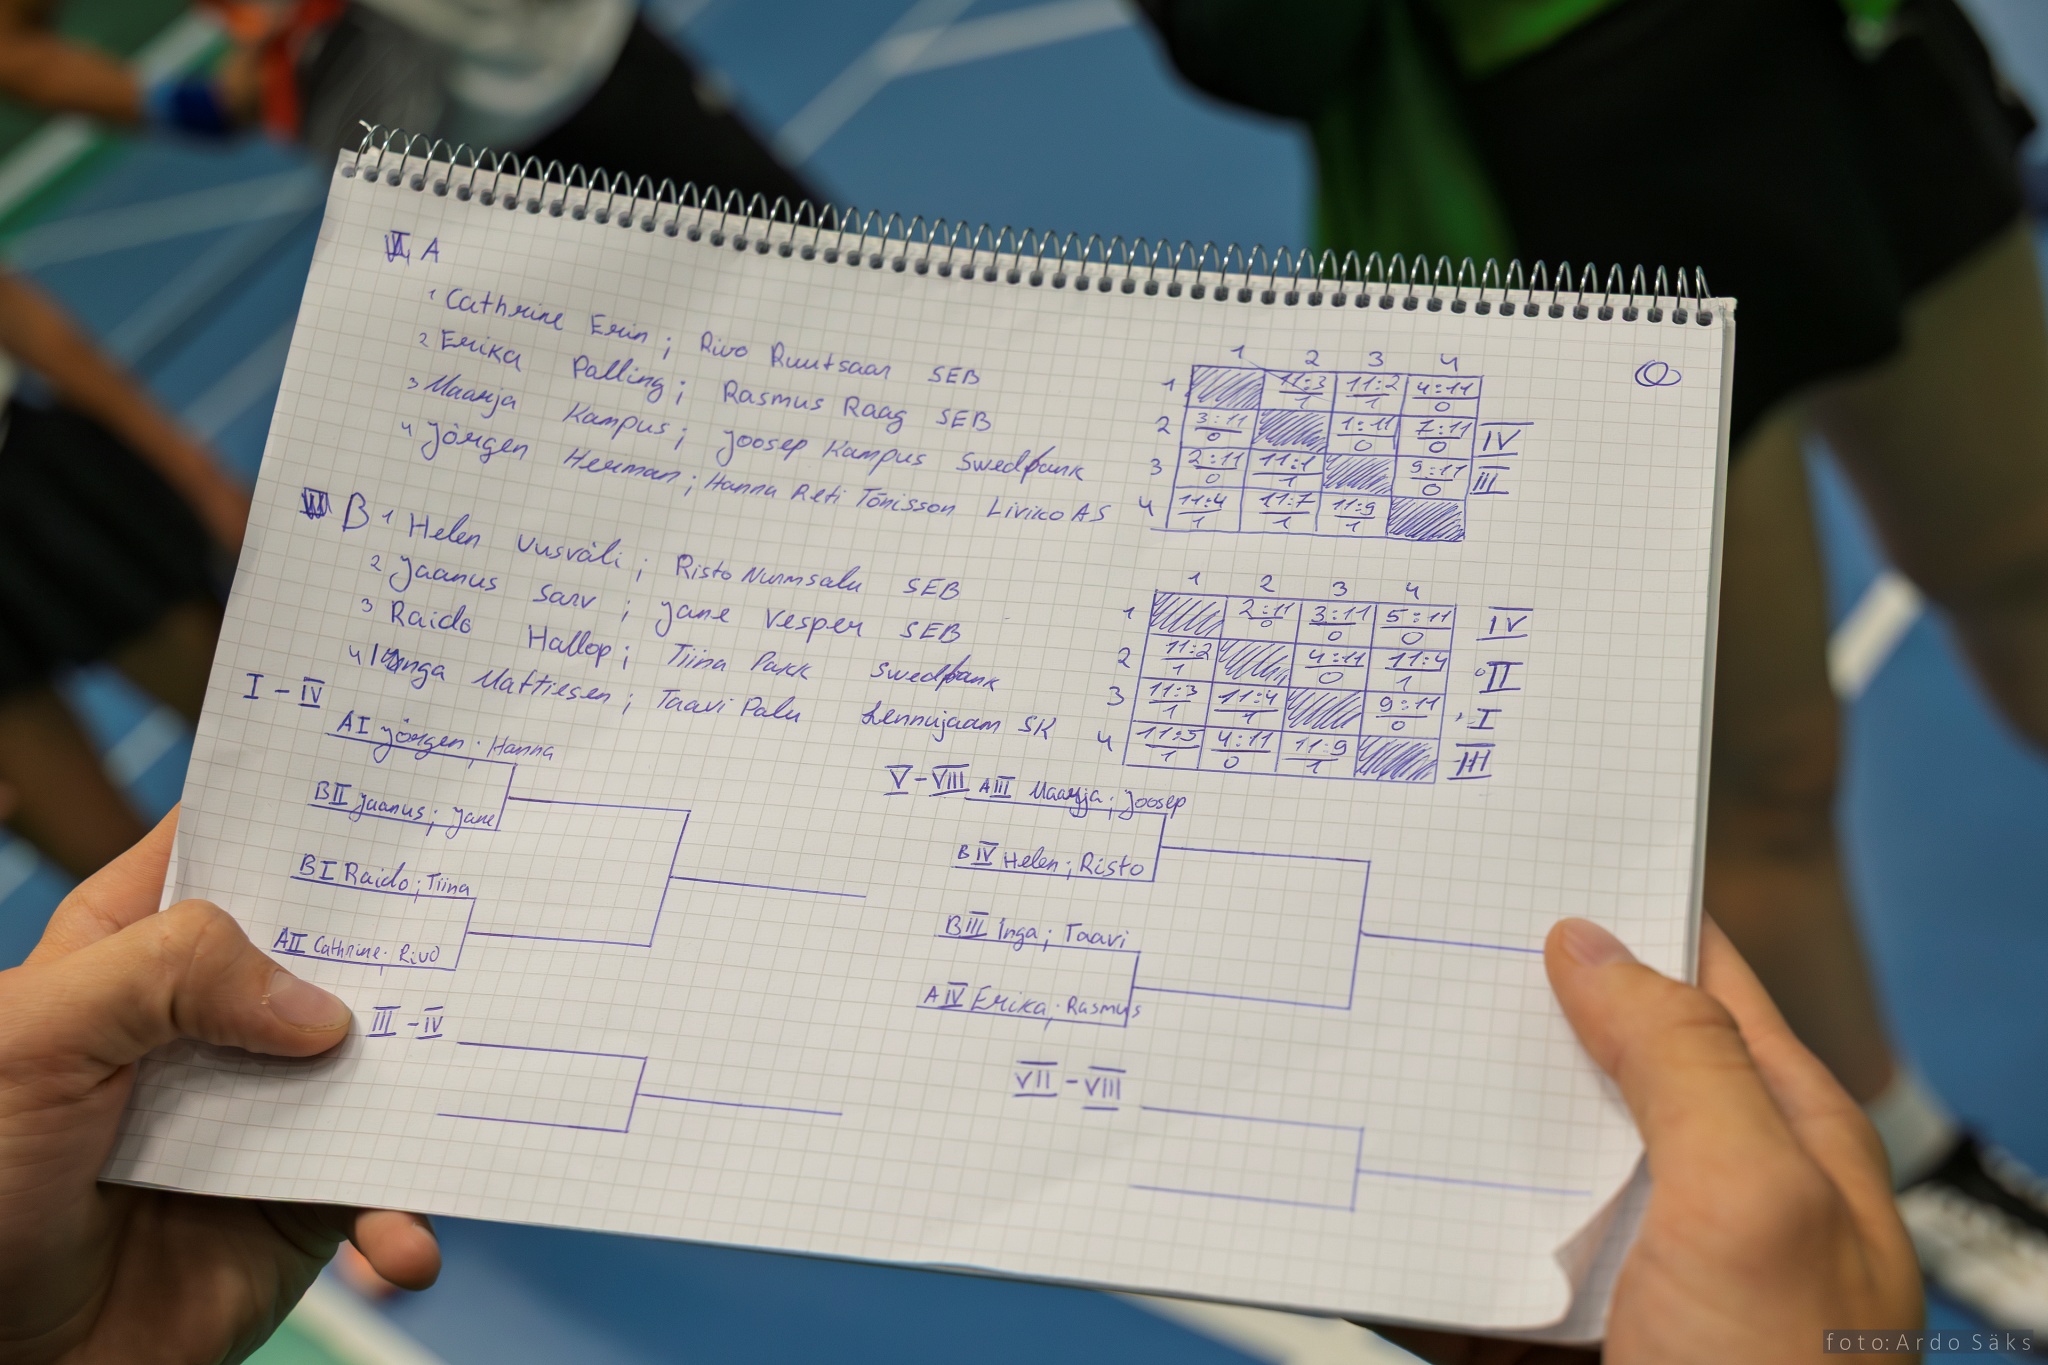 A
1 Cathrine Erin; Rivo Ruutsaar SEB
2 Erika Palling; Rasmus Raag SEB
3 Maarja Kampus; Joosep Kampus Swedbank
4 Jörgen Herman; Hanna Reti Tõnisson Liviko AS
1 2 3 4
1 11:3 1 11:2 1 4:11 0
2 3:11 0 1:11 0 7:11 0 IV
3 2:11 0 11:1 1 9:11 0 III
4 11:4 1 11:7 1 11:9 1
B 1 Helen Uusväli; Risto Nurmsalu SEB
2 Jaanus Sarv; Jane Vesper SEB
3 Raido Hallop; Tiina Pakk Swedbank
4 Inga Mattiesen; Taavi Palu Lennujaam SK
1 2 3 4
1 2:11 0 3:11 0 5:11 0 IV
2 11:2 1 4:11 0 11:4 1 II
3 11:3 1 11:4 1 9:11 0 I
4 11:5 1 4:11 0 11:9 1 III
I - IV
AI Jörgen; Hanna
BII Jaanus; Jane
BI Raido; Tiina
AII Cathrine; Rivo
III - IV
V - VIII AIII Maarja; Joosep
BIV Helen; Risto
BIII Inga; Taavi
AIV Erika; Rasmus
VII - VIII
foto:Ardo Säks